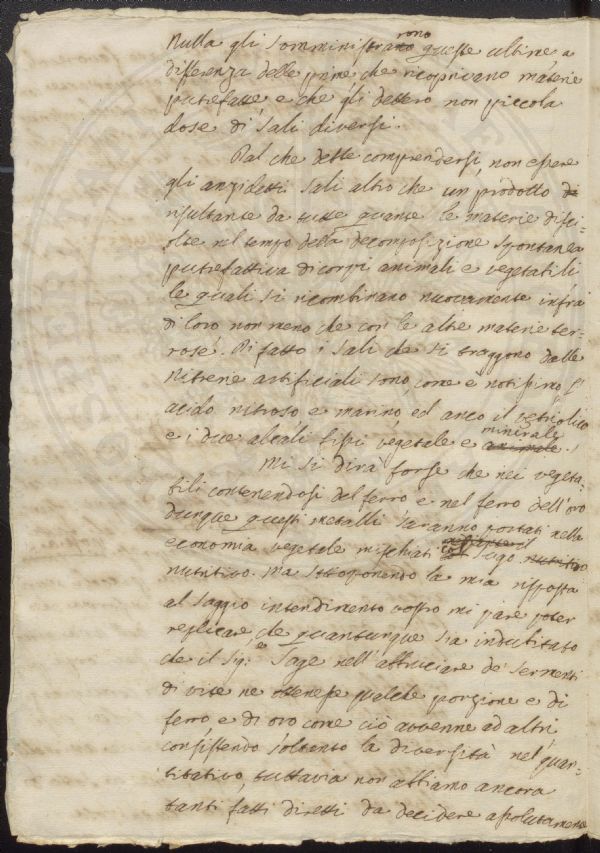 Nulla gli somministrarono queste ultime a
differenza delle prime che ricoprivano materie
putrefatte e che gli dettero non piccola
dose di sali diversi.
Dal che dette comprendersi, non essere
gli anzidetti sali altro che un prodotto di
risultante da tutte quante le materie disci-
olte nel tempo della decomposizione spontanea
putrefattiva di corpi animali e vegetabili
le quali si ricombinano nuovamente infra
di loro non meno che con le altre materie ter-
rose. Di fatto i sali che si traggono dalle
Nitrerie artificiali sono, come è notissimo, l'
acido nitroso e marino, ed anco il vetriolico
e i due alcali fissi vegetale e animale minerale.
Mi si dirà forse che nei vegeta-
bili contenendosi del ferro e nel ferro dell'oro
dunque questi metalli saranno portati nella
economia vegetale mischiati col sugo nutritivo
nutritivo. Ma sottoponendo la mia risposta
al saggio intendimento vostro mi pare poter
replicare, che quantunque sia indubitato
che il Sig.e Sage nell'abbruciare de' sermenti
di vite ne ottenesse qualche porzione e di
ferro e di oro come ciò avvenne ad altri
consistendo soltanto la diversità nel quan-
titativo, tuttavia non abbiamo ancora
tanti fatti diretti da decidere assolutamente